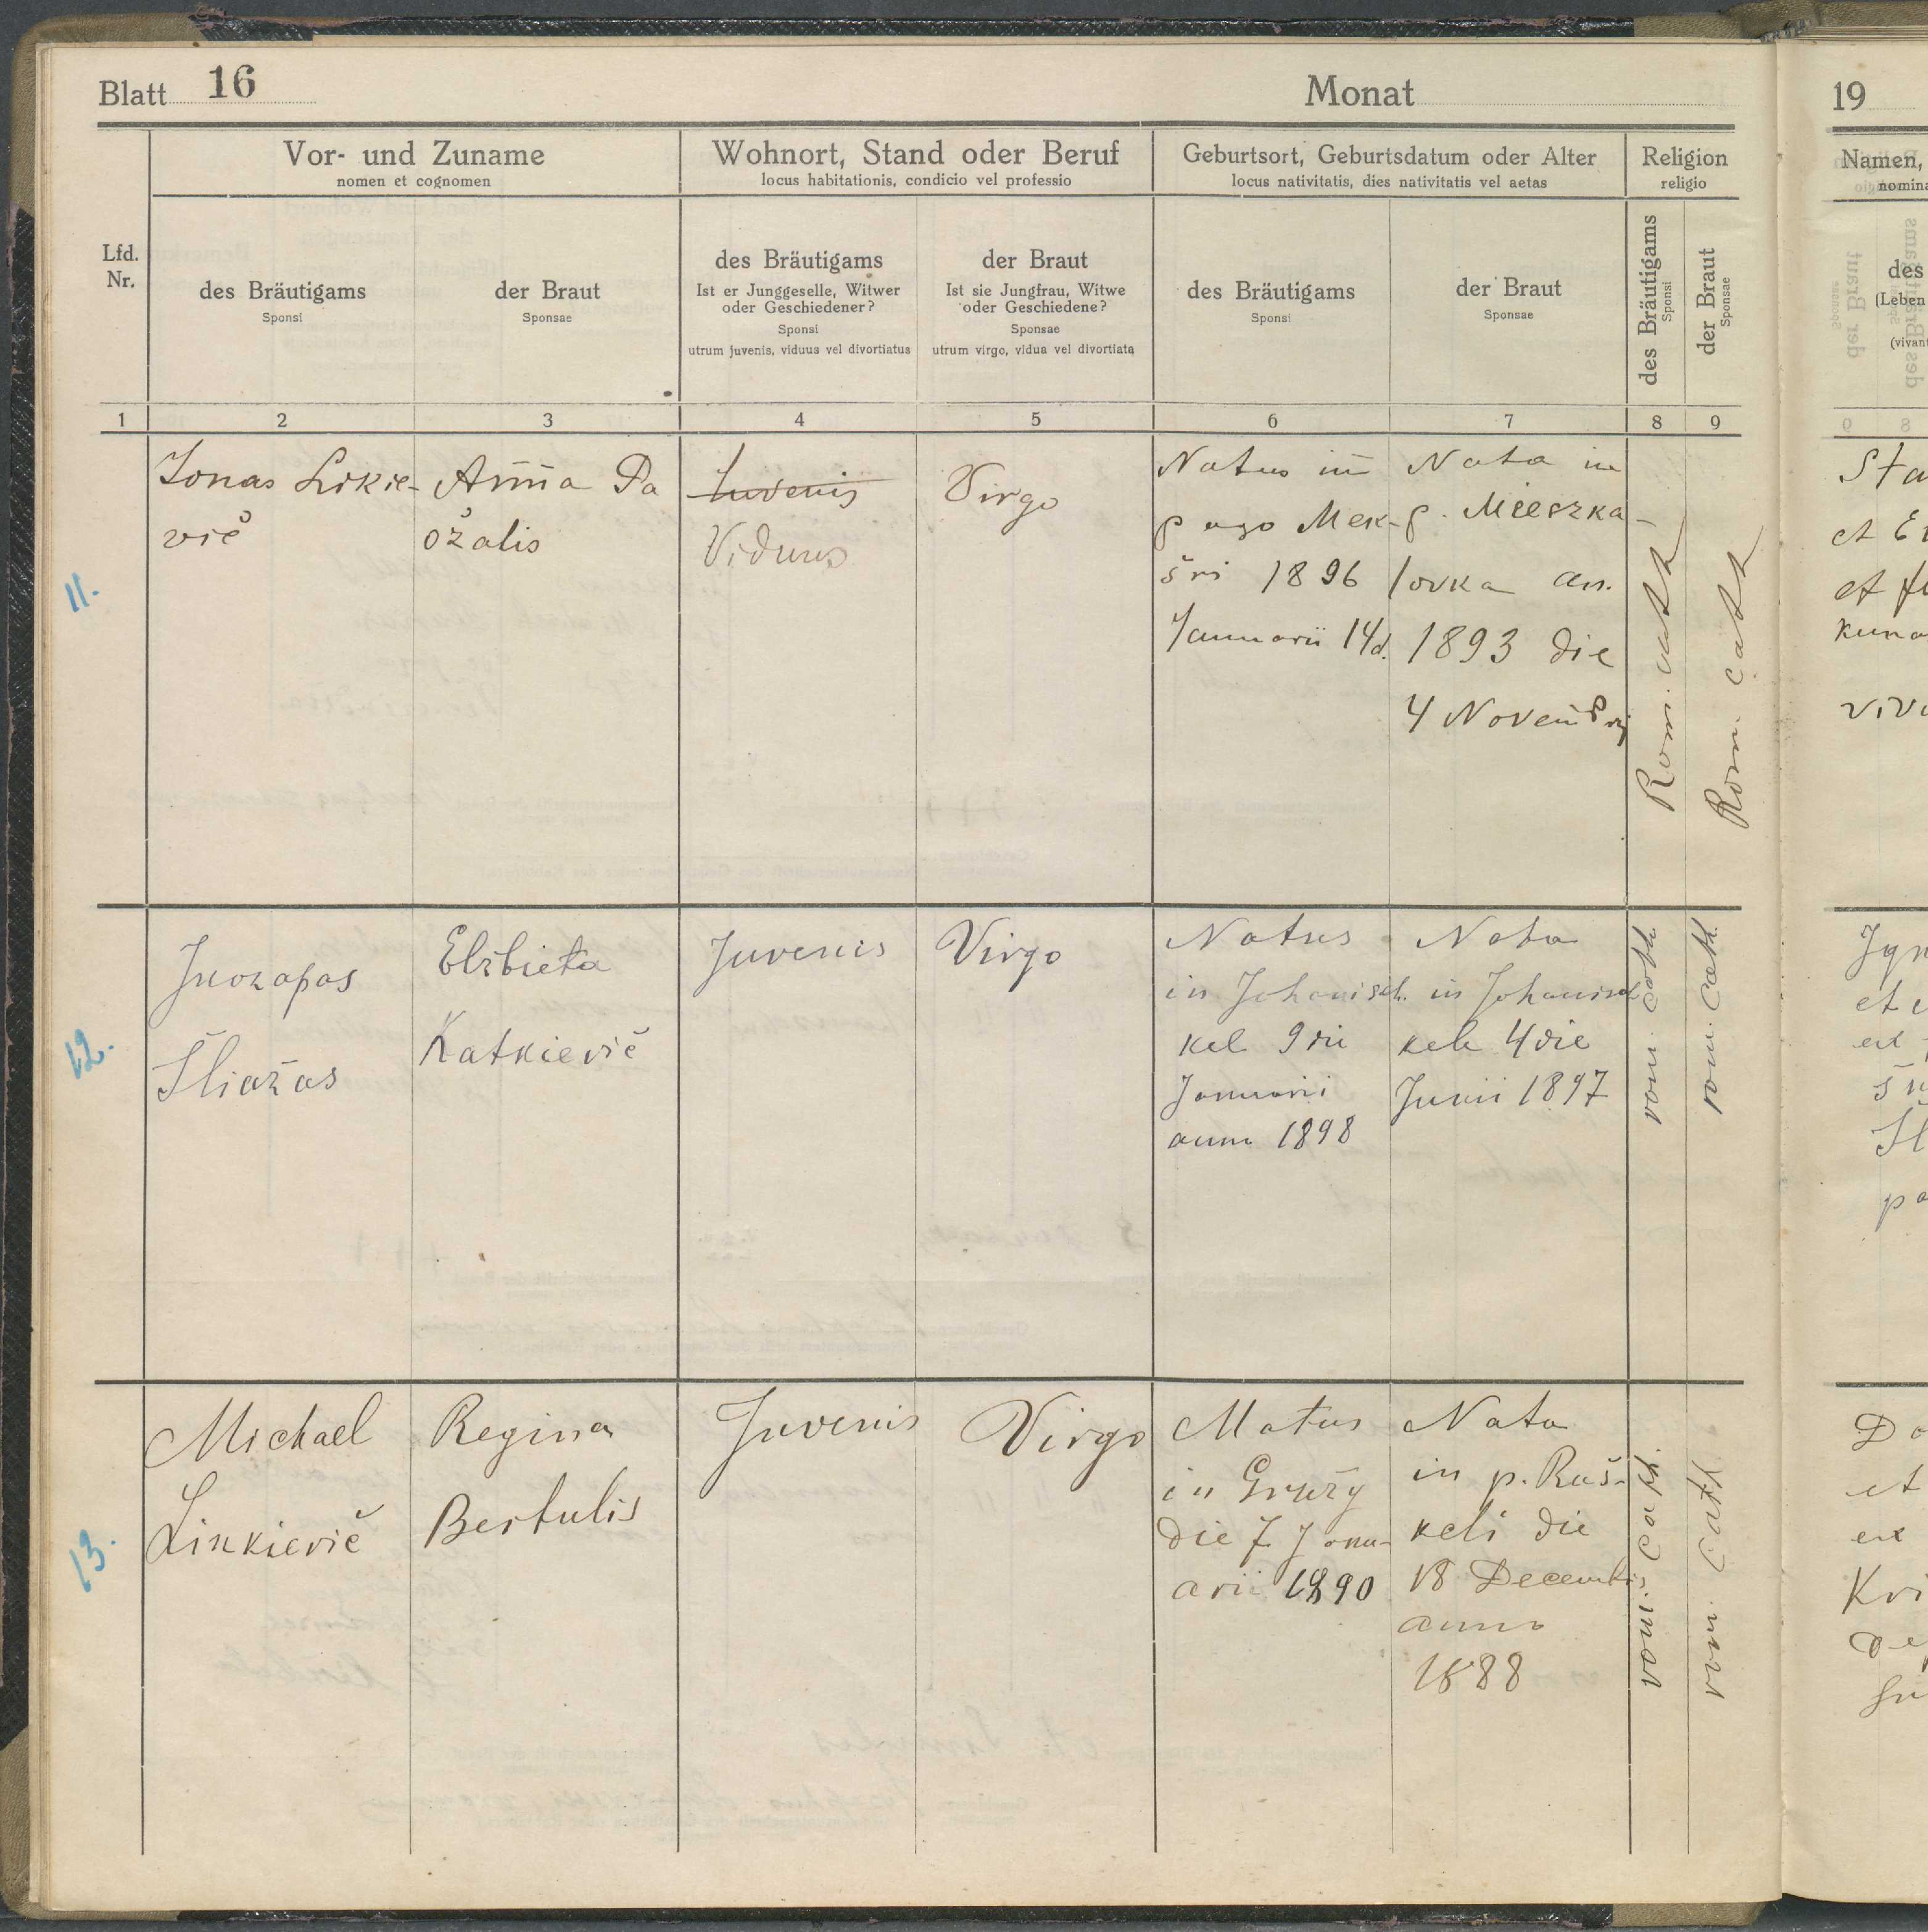 Blatt 16
Monat
Vor- und Zuname
nomen et cognomen
Wohnort, Stand oder Beruf
locus habitationis, condicio vel professio
Geburtsort, Geburtsdatum oder Alter
locus nativitatis, dies nativitatis vel aetas
Religion
religio
Lfd.
Nr.
des Bräutigams
Sponsi
der Braut
Sponsae
des Bräutigams
Ist er Junggeselle, Witwer
oder Geschiedener?
Sponsi
utrum juvenis, viduus vel divortiatus
der Braut
Ist sie Jungfrau, Witwe
oder Geschiedene?
Sponsae
utrum virgo, vidua vel divortiata
des Bräutigams
Sponsi
der Braut
Sponsae
des Bräutigams
Sponsi
der Braut
Sponsae
1 2 3 4 5 6 7 8 9
11.
Jonas Likie-
vič
Anna Pa
ožalis
Juvenis
Viduus
Virgo
Natus in
pago Mek-
šri 1896
Januarii 14d.
Nata in
p. Mieszka-
lovka an.
1893 die
4 Novembrij
Rom. cath
Rom. cath
12.
Juozapas
Šliažas
Elzbieta
Katkievič
Juvenis
Virgo
Natus
in Johanisch.
kel 9 die
Januarii
anno 1898
Nata
in Johanisch
kele 4 die
Junii 1897
rom. cath.
rom. cath.
13.
Michael
Linkievič
Regina
Bertulis
Juvenis
Virgo
Natus
in Gružy
die 7 Janu-
arii 1890
Nata
in p. Ruš-
keli die
18 Decembris
anno
1888
rom. cath.
rom. cath.
19
Namen,
nomina
des
(Leben
(vivant
Sta
et
et
kuna
Jgn
et
ex
Do
et
ex
Kri